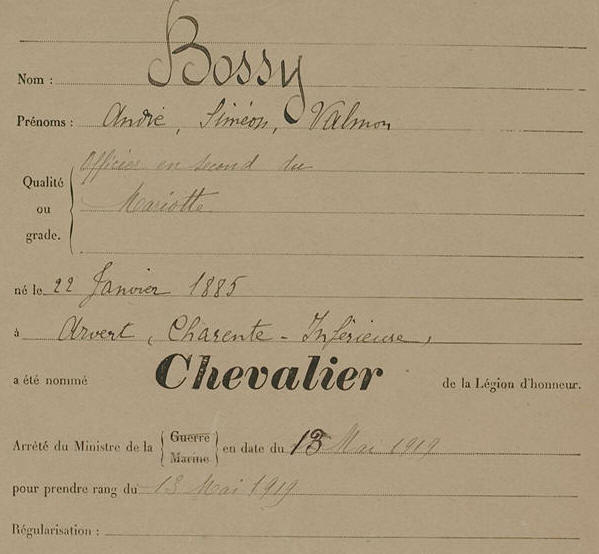 Nom : Bossy
Prénoms : André, Siméon, Valmon
Qualité ou grade. Officier en second du
Mariotte
né le 22 Janvier 1885
à Arvert, Charente-Inférieure,
a été nommé Chevalier de la Légion d'honneur.
Arrêté du Ministre de la { Guerre Marine } en date du 13 Mai 1919
pour prendre rang du 13 Mai 1919
Régularisation :